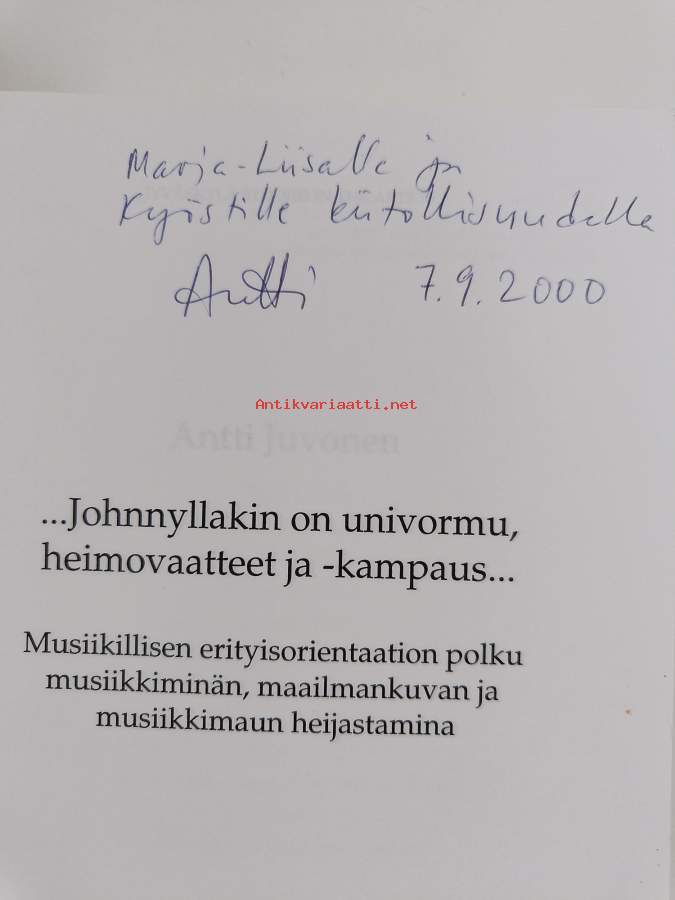 Marja-Liisalle ja
Kyöstille kiitollisuudella
Antti 7.9.2000
Antikvariaatti.net
Antti Juvonen
...Johnnyllakin on univormu,
heimovaatteet ja -kampaus...
Musiikillisen erityisorientaation polku
musiikkiminän, maailmankuvan ja
musiikkimaun heijastamina